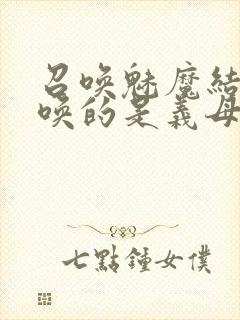 召喚魅魔結
喚的是義母
七點鐘女僕